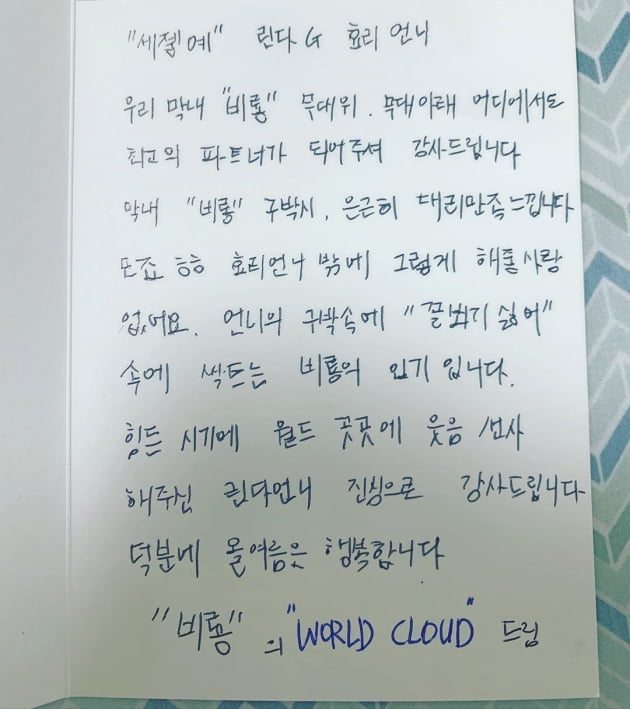 "세젤예" 린다G 효리 언니
우리 막내 "비룡" 무대위. 무대아래 어디에서도
최고의 파트너가 되어주셔 감사드립니다
막내 "비룡" 구박시, 은근히 대리만족느낍니다
모죠 ㅎㅎ 효리언니 밖에 그렇게 해줄사람
없어요. 언니의 구박속에 "꼴뵈기 싫어"
속에 싹트는 비룡의 인기 입니다.
힘든 시기에 월드 곳곳에 웃음 선사
해주신 린다언니 진심으로 감사드립니다
덕분에 올여름은 행복합니다
"비룡" 의 "WORLD CLOUD" 드림